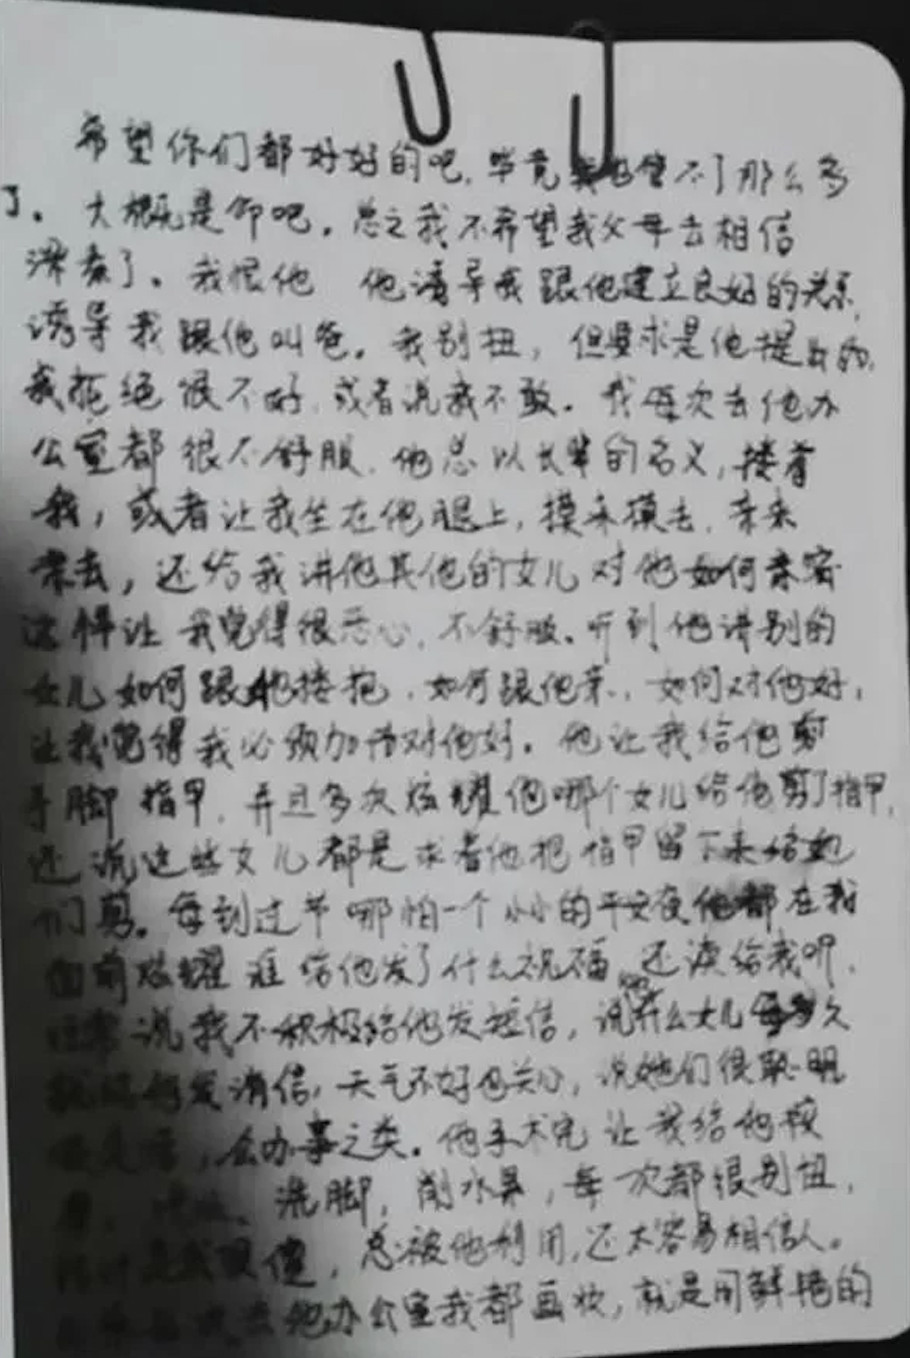 希望你们都好好的吧，毕竟我也管不了那么多
了。大概是命吧。总之我不希望我父母去相信
了。我恨他 他诱导我跟他建立良好的关系，
诱导我跟他叫爸。我别扭，但要求是他提出的，
我拒绝很不好，或者说我不敢。我每次去他办
公室都很不舒服，他总以长辈的名义，搂着
我，或者让我坐在他腿上，摸来摸去，亲来
亲去，还给我讲他其他的女儿对他如何亲密
这样让我觉得很恶心，不舒服。听到他讲别的
女儿如何跟他搂抱，如何跟他亲，如何对他好，
让我觉得我必须加倍对他好。他让我给他剪
手脚指甲，并且多次炫耀他哪个女儿给他剪了指甲，
还说这些女儿都是求着他把指甲留下来给她
们剪。每到过节哪怕一个小小的平安夜他都在我
面前炫耀谁给他发了什么祝福，还读给我听，
经常说我不积极给他发短信，说什么女儿每多久
就给他发消息，天气不好也关心，说她们很聪明
，会办事之类。他手术完让我给他按
洗脚，削水果，每次都很别扭，
估计是我很傻，总被他利用，还太容易相信人。
去他办公室我都画妆，就是用鲜艳的